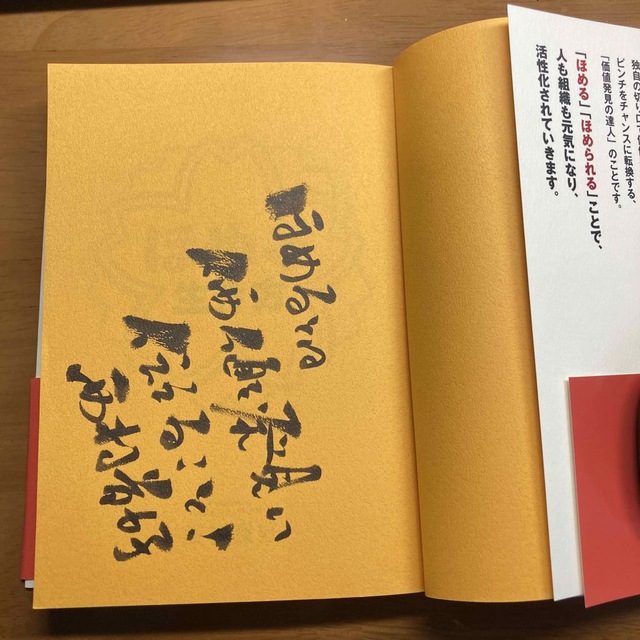 独自の切り口で
ピンチをチャンスに転換する、
「価値発見の達人」のことです。
「ほめる」「ほめられる」ことで、
人も組織も元気になり、
活性化されていきます。
ほめるとは
伝えること!
西村貴好